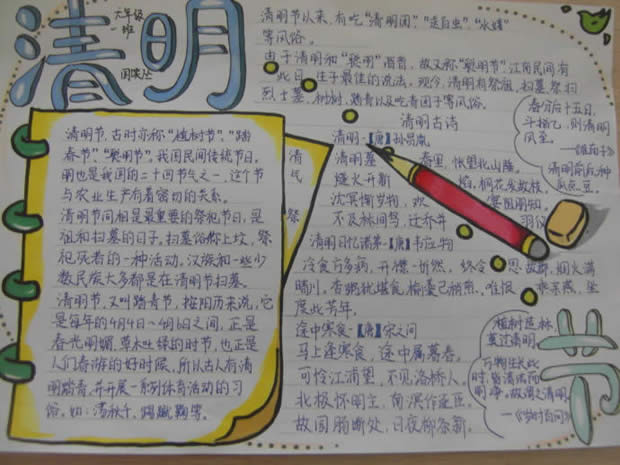 清明
六年级
一班
清明节以来，有吃“清明团”、“走白虫”、“水嬉”
等风俗。
由于清明和“聪明”谐音，故又称“聪明节”，江角民间有
此日，生子最佳的说法。现今，清明有祭祖、扫墓、祭扫
烈士墓、树树、踏青以及吃青团子等风俗。
清明古诗
清明-【唐】孙昌胤
清明暮春里，怅望北山陲。
燧火开新焰，桐花发故枝。
沈冥惭岁物，欢宴阻朋知。
不及林间鸟，迁乔并羽仪
清明日忆诸弟-【唐】韦应物
冷食方多病，开襟一忻然。终令思故郡，烟火满
晴川。杏粥犹堪食，榆羹已稍煎。唯恨乖亲燕，坐
度此芳年。
途中寒食-【唐】宋之问
马上逢寒食，途中属暮春。
可怜江浦望，不见洛桥人。
北极怀明主，南溟作逐臣。
故园肠断处，日夜柳条新。
清明节，古时亦称“植树节”、“踏
春节”、“聪明节”，我国民间传统节日。
明也是我国的二十四节气之一，这个节
与农业生产有着密切的关系。
清明节间相是最重要的祭祀节日，是
祖和扫墓的日子。扫墓俗称上坟，祭
祀死者的一种活动。汉族和一些少
数民族大多都是在清明节扫墓。
清明节，又叫踏青节，按阳历来说，它
是每年的4月4日~4月6日之间，正是
春光明媚，草木吐绿的时节，也正是
人们春游的好时候，所以古人有清
明踏青，并开展一系列体育活动的习
俗。如：荡秋千、踢蹴鞠等。
清
气
祭
春分后十五日，
斗指乙，则清明
风至。
—《淮南子》
清明前后，种
瓜点豆。
植树造林，
莫过清明。
万物生长此
时，皆清洁而
明净。故谓之清明。
—《岁时百问》
节